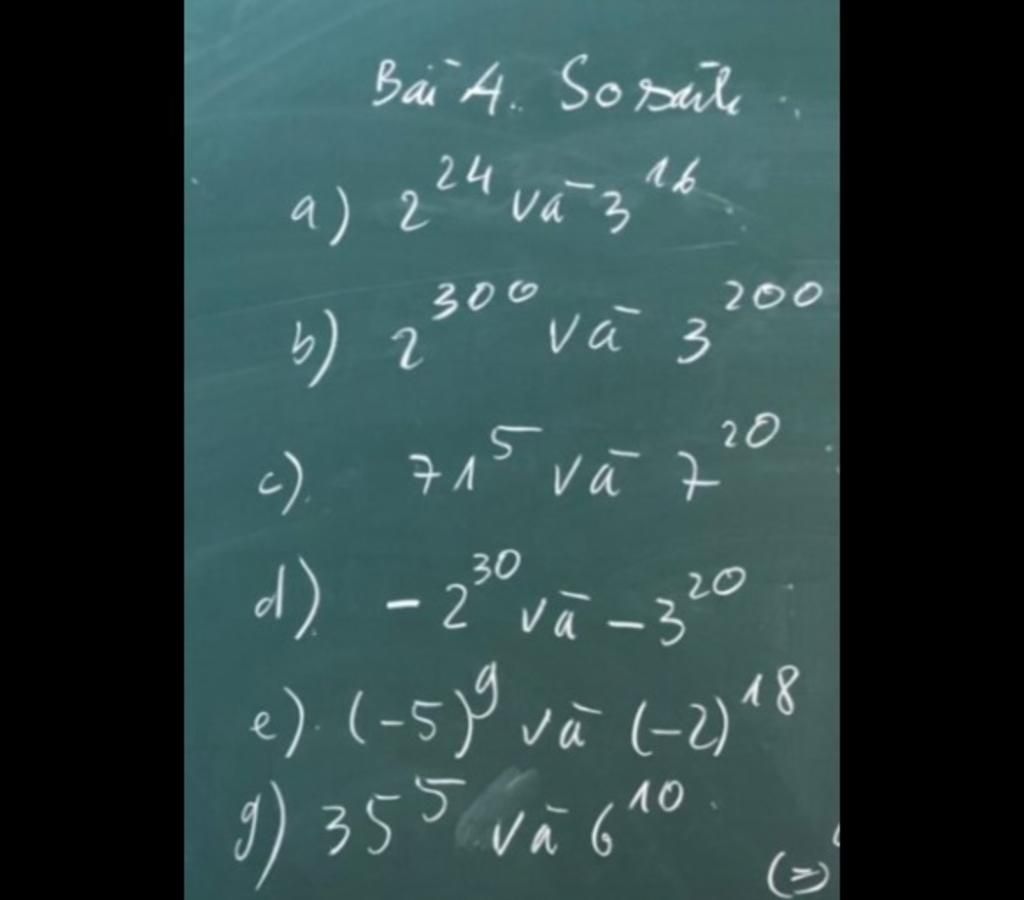 Bài 4. So sánh.
a) 2^24 và 3^16
b) 2^300 và 3^200
c). 71^5 và 7^20
d) -2^30 và -3^20
e). (-5)^9 và (-2)^18
g) 35^5 và 6^10
(=)